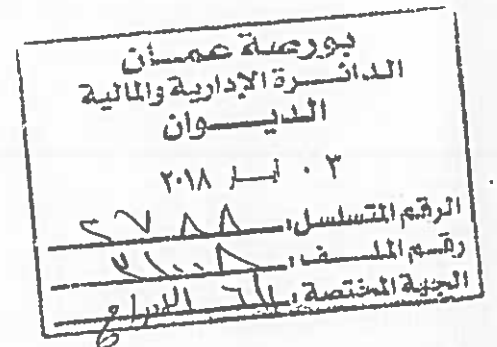 بورصة عمان
الدائرة الإدارية والمالية
الديوان
٠٣ أيار ٢٠١٨
الرقم المتسلسل: ٢٧٨٨
رقم الملف:
الجهة المختصة: